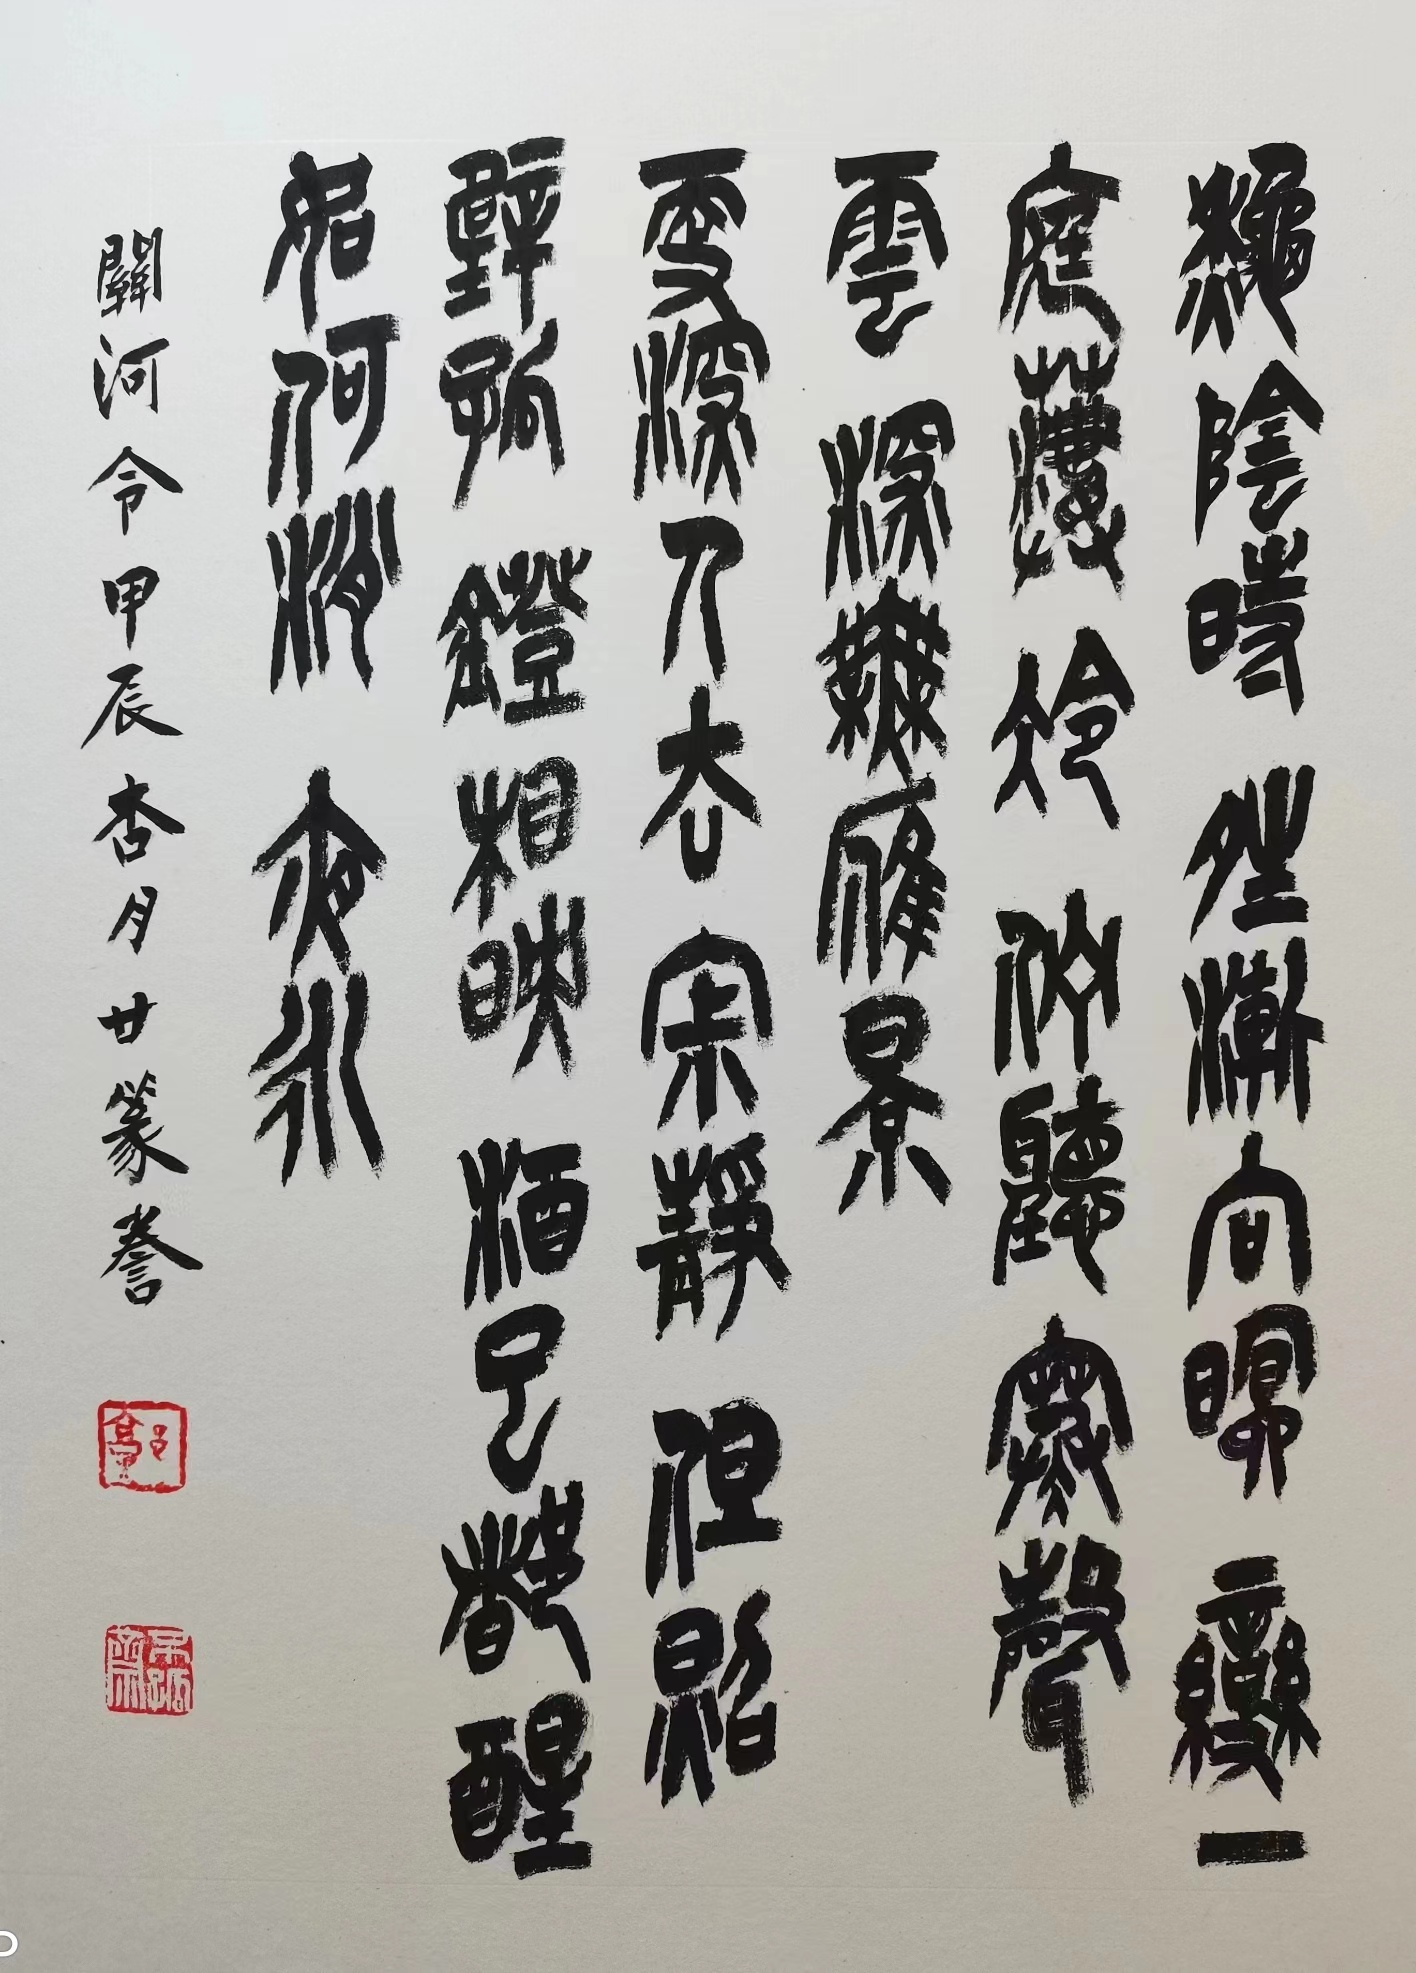 秋陰時 晴漸向暝 變一
庭淒 冷 佇聽 寒聲
雲 深無雁景
更深人去 寂靜 但照
壁孤 鐙 相映 酒已都醒
如何消 夜永
關河令甲辰杏月廿篆謄